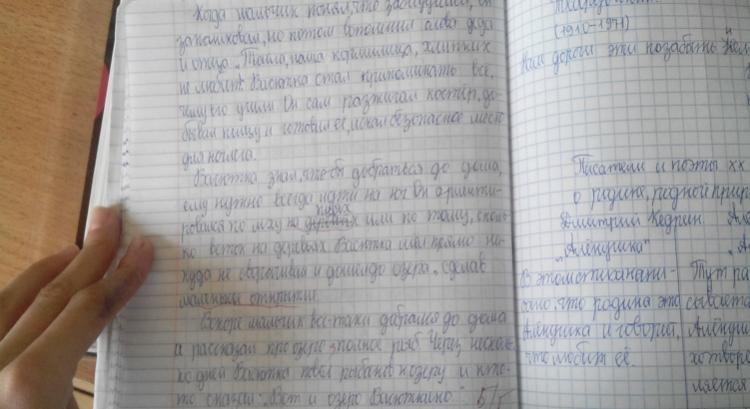 Когда мальчик понял, что заблудился, он
запаниковал, но потом вспомнил слова деда
и отца „Тайга, наша кормилица, хлипких
не любит". Васютка стал припоминать все,
чему его учили Он сам разжигал костёр, до-
бывал пищу и готовил её, искал безопасное место
для ночлега.
Васютка знал, что бы добраться до дома,
ему нужно всегда идти на юг Он ориенти-
ровался по мху на деревьях или по тому, сколь-
ко веток на деревьях Васютка шёл прямо ни-
куда не сворачивая и дошёл до озера, сделав
маленькое открытие.
Вскоре мальчик все-таки добрался до дома
и рассказал про озеро полное рыб Через несколь-
ко дней Васютка повел рыбаков к озеру и кто-
то сказал: „Вот и озеро Васюткино."
(1910-1971)
Нам дороги эти позабыть
Писатели и поэты XX
о родине, родной прир
Дмитрий Кедрин.
„Алёнушка"
В этом стихе напи-
сано, что родина это
Алёнушка и говорит,
что любит её.
Тут ра
сывает
Алёнуш
котора
ляется